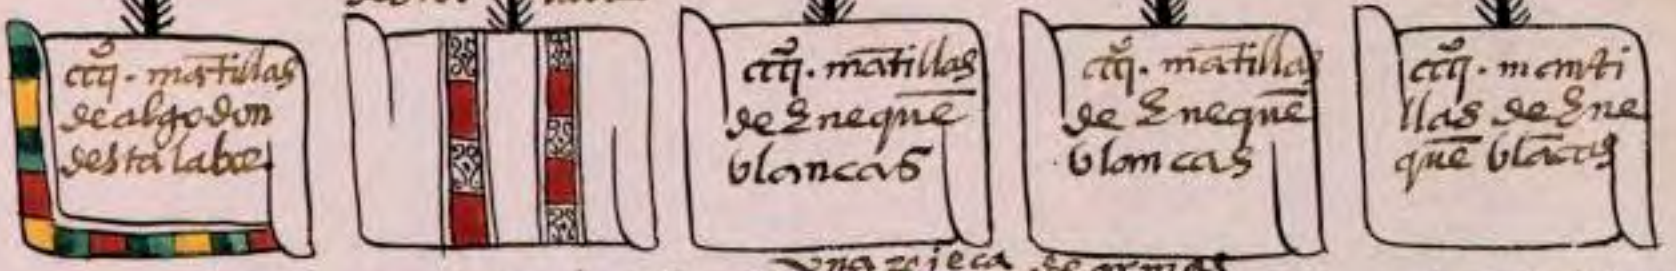 ccccº. mãtillas
de algodon
desta labor
ccccº. mãtillas
de Enequẽ
blancas
ccccº. mãtillas
de Enequẽ
blancas
ccccº. manti
llas de Ene
quẽ blãcas
una pieça de armas